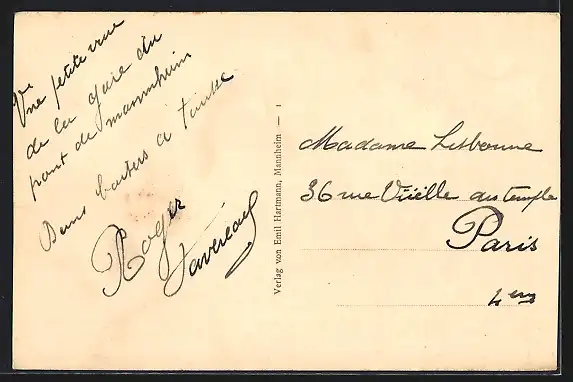 Une petite vue
de la gare du
pont de mannheim
Bons baisers à toutse
Roger
Verlag von Emil Hartmann, Mannheim — 1
Madame Lisbonne
36 rue Vieille du temple
Paris
4em